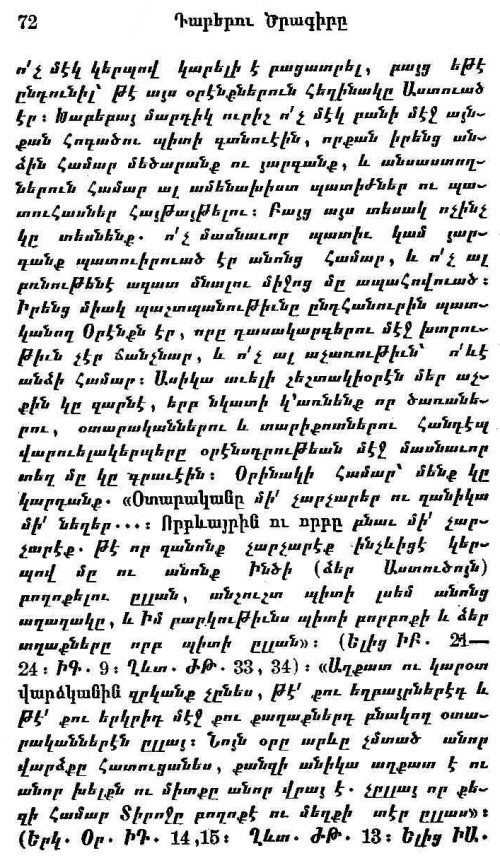 72 Դարերու Ծրագիրը
ո՛չ մէկ կերպով կարելի է բացատրել, բայց եթէ
ընդունիլ՝ թէ այս օրէնքներուն Հեղինակը Աստուած
էր։ Խաբեբայ մարդիկ ուրիչ ո՛չ մէկ բանի մէջ այն-
քան հոգածու պիտի գտնուէին, որքան իրենց ան-
ձին համար մեծարանք ու յարգանք, և անսաստող-
ներուն համար ալ ամենախիստ պատիժներ ու պա-
տուհասներ հայթայթելու։ Բայց այս տեսակ ոչինչ
կը տեսնենք. ո՛չ մասնաւոր պատիւ կամ յար-
գանք պատուիրուած էր անոնց համար, և ո՛չ ալ
բռնութենէ ազատ մնալու միջոց մը ապահովուած։
Իրենց միակ պաշտպանութիւնը ընդհանուրին պատ-
կանող Օրէնքն էր, որը դասակարգերու մէջ խտրու-
թիւն չէր ճանչնար, և ո՛չ ալ աչառութիւն՝ ո՛ևէ
անձի համար։ Ասիկա աւելի շեշտակիօրէն մեր աչ-
քին կը զարնէ, երբ նկատի կ՚առնենք որ ծառանե-
րու, օտարականներու և տարիքոտներու հանդէպ
վարուելակերպերը օրէնսդրութեան մէջ մասնաւոր
տեղ մը կը գրաւէին։ Օրինակի համար՝ մենք կը
կարդանք. «Օտարականը մի՛ չարչարեր ու զանիկա
մի՛ նեղեր...։ Որբևայրին ու որբը բնաւ մի՛ չար-
չարէք. թէ որ զանոնք չարչարէք ինչևիցէ կեր-
պով մը ու անոնք Ինծի (ձեր Աստուծոյն)
բողոքելու ըլլան, անշուշտ պիտի լսեմ անոնց
աղաղակը, և Իմ բարկութիւնս պիտի բորբոքի և ձեր
տղաքները որբ պիտի ըլլան»։ (Ելից ԻԲ. 21—
24։ ԻԳ. 9։ Ղևտ. ԺԹ. 33, 34)։ «Աղքատ ու կարօտ
վարձկանին զրկանք չընես, թէ՛ քու եղբայրներէդ և
թէ՛ քու երկրիդ մէջ քու քաղաքներդ բնակող օտա-
րականներէն ըլլայ։ Նոյն օրը արևը չմտած անոր
վարձքը հատուցանես, քանզի անիկա աղքատ է ու
անոր խելքն ու միտքը անոր վրայ է. չըլլայ որ քե-
զի համար Տիրոջը բողոքէ ու մեղքի տէր ըլլաս»։
(Երկ. Օր. ԻԴ. 14,15։ Ղևտ. ԺԹ. 13։ Ելից ԻԱ.